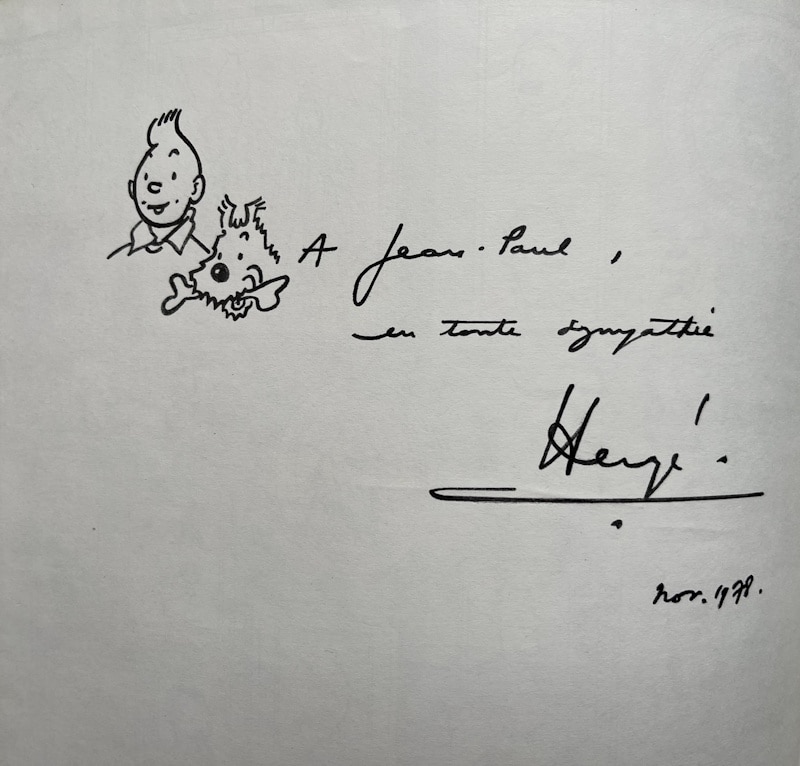 A Jean-Paul,
en toute sympathie
Hergé.
nov. 1978.